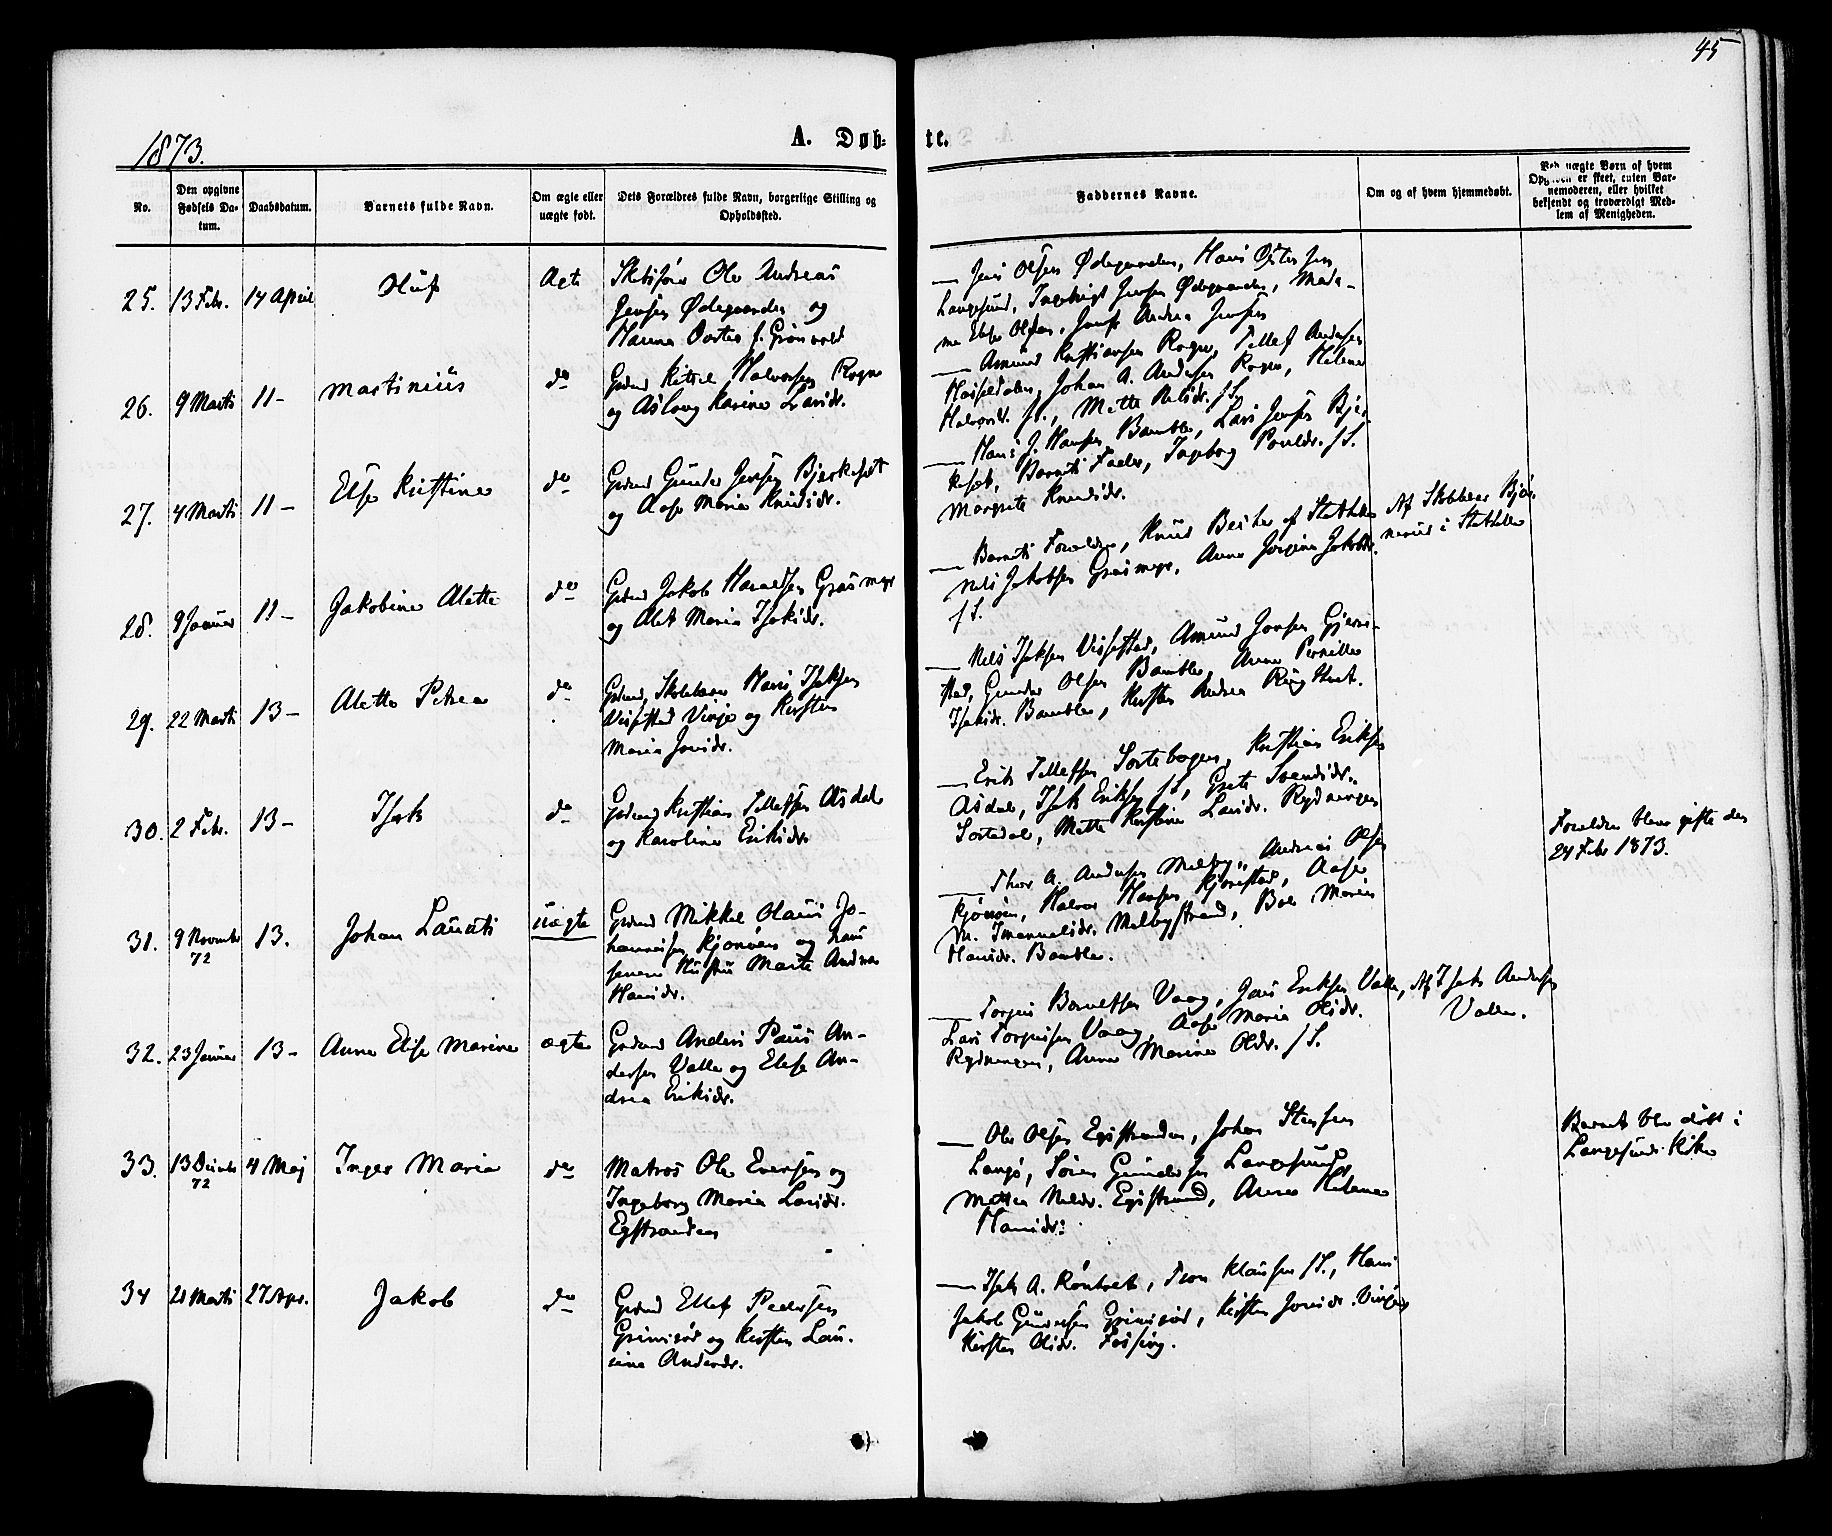 45
1873.
A. Døb-
te.
No.
Den opgivne
Fødsels Da-
tum.
Daabsdatum.
Barnets fulde Navn.
Om ægte eller
uægte født.
Dets Forældres fulde Navn, borgerlige Stilling og
Opholdssted.
Faddernes Navne.
Om og af hvem hjemmedøbt.
Ved uægte Børn af hvem
Opgaven er skeet, enten Bar-
nemoderen, eller hvilket
bekjendt og troværdigt Med-
lem af Menigheden.
25. 13 Febr. 14 April Oluf Ægte
Ole Andreas
Jensen Ødegaarden og
f. Grønvold
Jens Olsen Ødegaarden, Hans
Langesund, Jensen Ødegaarden, Mada-
me Else Olsen, Andrea Jensen
26. 9 Marts 11- Martinius do
Grdmd Kittel Halvorsen Rogne
og Aslaug Karine Larsdr.
Amund Kristiansen Rogne, Tellef Andersen
Johan A. Andersen Rogne, Helene
Halvorsd. st., Mette Nilsdr. sS.
27. 4 Marts 11- Else Kristine do
Grdmd Gunder Jensen Bjerkeset
og Aase Maria Knudsdr.
Hans J. Hansen Bamble, Lars Jensen Bjer-
keset, Barnets Fader, Ingeborg Poulsdr. sS.
Margrete Knudsdr.
28. 9 Januar 11- Jakobine Alette do
Grdmd Jakob Haraldsen Grasmyr
og Alet Maria Isaksdr.
Barnets Forældre, Knud af Stathelle
Nels Jakobsen Grasmyr, Anne Jorgine Jakobsdr.
sS.
Af Skolelærer Bjør-
i Stathelle
29. 22 Marts 13- Alette Petrea do
Grdmd, Skolelærer Hans Isaksen
Vissestad Vinje og Kirsten
Maria Jonsdr.
Nels Isaksen Vissestad, Amund Jonsen Gjerms-
stad, Gunder Olsen Bamble, Anne Pernille
Isaksdr. Bamble, Kirsten Andrea
30. 2 Febr. 13- Isak do
Grdmd Kristian Tellefsen Asdal
og Karoline Eriksdr.
Erik Tellefsen Sortebogen, Kristian Eriksen
Asdal, Isak Eriksen sS., Grete Svendsdr.
Sortedal, Mette Kristine Larsdr. Rydningen
31. 9 Novembr 72 13. Johan Laurits uægte
Grdmd Mikkel Olaus Jo-
hannesen Kjønnøen og hans
senere Hustru Marte Andrea
Hansdr.
Thor A. Andersen Melby, Andreas Olsen
Kjønnøen, Halvor Hansen Kjørstad, Aase
M. Imanuelsdr. Melbystrand, Boe Maria
Hansdr. Bamble.
Forældre bleve gifte den
24 Febr 1873.
32. 23 Januar 13- Anne Elise Marine ægte
Grdmd Anders Paus An-
dersen Valle og Elise An-
drea Eriksdr.
Torgius Berntsen Vaag, Jens Eriksen Valle,
Lars Torgiussen Vaag, Aase Maria Olsdr.
Rydningen, Anne Marine Olsdr. sS.
Af Isak Andersen
Valle.
33. 13 Decmbr 72 4 Maj Inger Maria do
Matros Ole Evensen og
Ingeborg Maria Larsdr.
Egstranden
Ole Olsen Egstranden, Johan Stensen
Langø, Søren Gundersen Langesund,
Mathea Nelsdr. Egstrand, Anne Helene
Hansdr.
Barnet blev døbt i
Langesunds Kirke
34 21 Marts 27 Apr. Jakob do
Grdmd Ellef Pedersen
Grimsrød og Kirsten Lau-
rine Andersdr.
Isak A. Rønholt, Tron Klausen sS., Hans
Jakob Gundersen Grimsrød, Kirsten Jonsdr. Vinje
Kirsten Olsdr. Fossing.